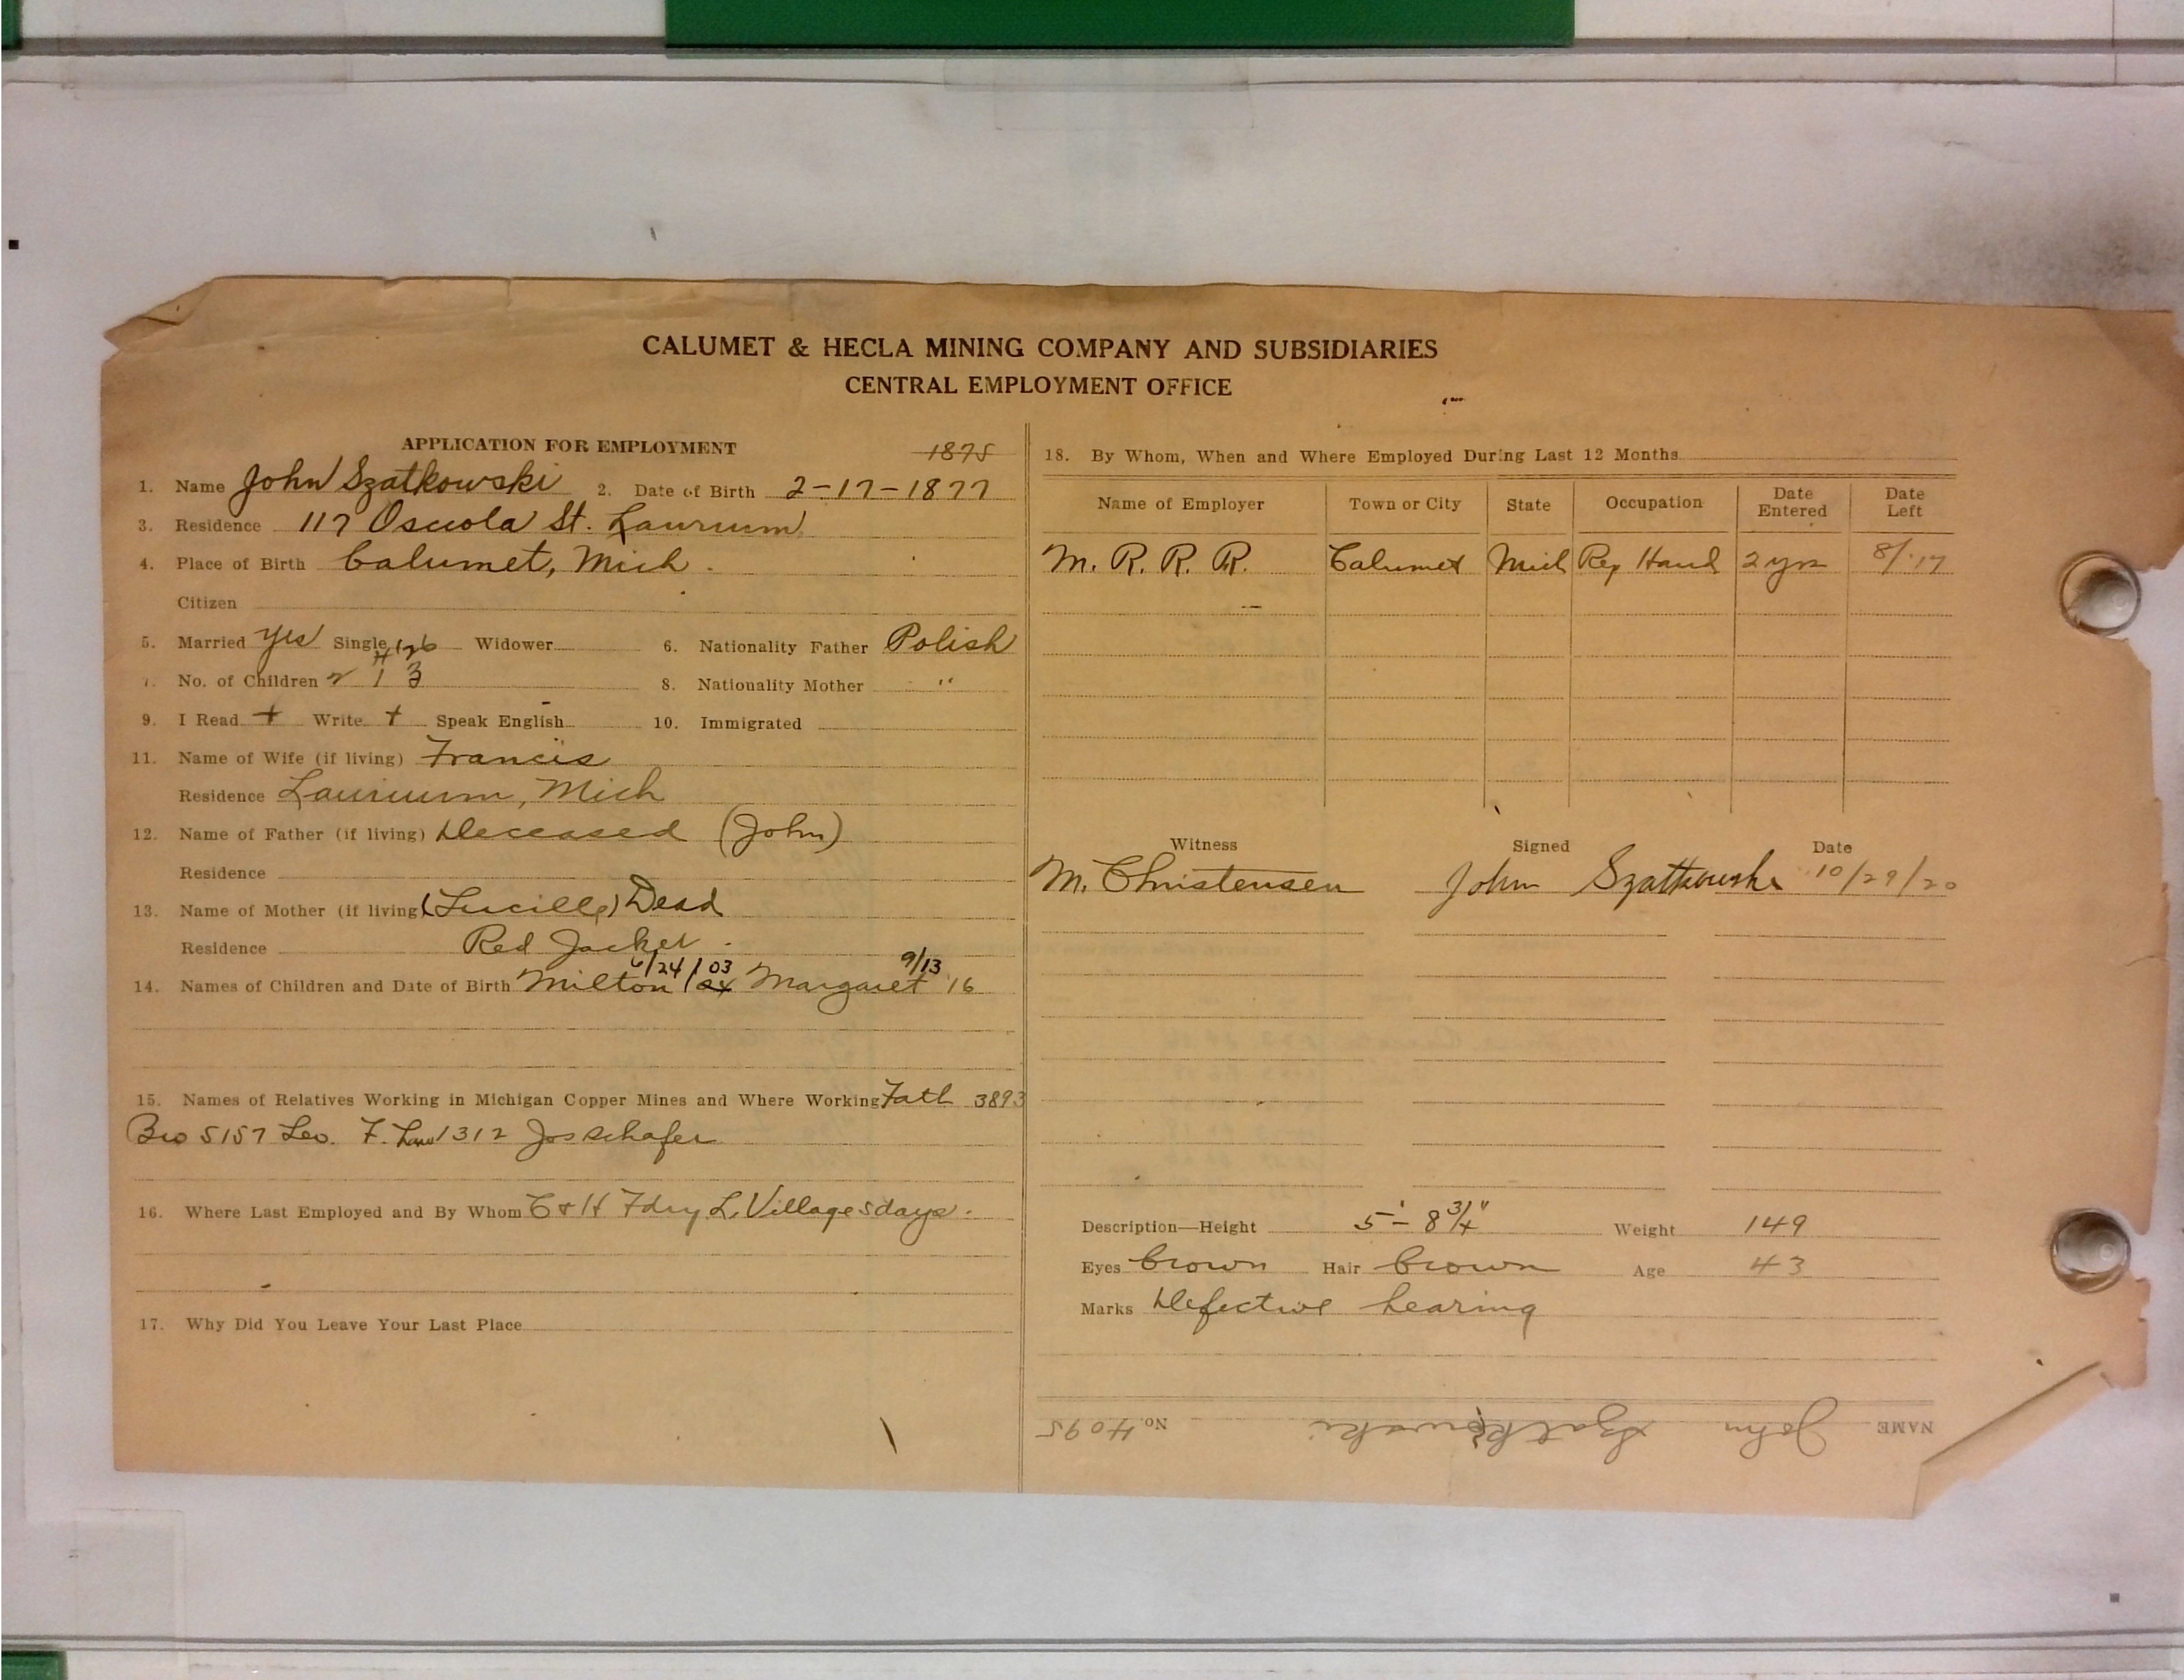 CALUMET & HECLA MINING COMPANY AND SUBSIDIARIES
CENTRAL EMPLOYMENT OFFICE
APPLICATION FOR EMPLOYMENT
1875
1. Name John Szatkowski 2. Date of Birth 2-17-1877
3. Residence 117 Osceola St. Laurium
4. Place of Birth Calumet, Mich.
Citizen
5. Married yes Single Widower 6. Nationality Father Polish
7. No. of Children 1 3 8. Nationality Mother "
9. I Read + Write + Speak English 10. Immigrated
11. Name of Wife (if living) Francis
Residence Laurium, Mich
12. Name of Father (if living) Deceased (John)
Residence
13. Name of Mother (if living) (Lucille) Dead
Residence Red Jacket.
6/24/03 9/13
14. Names of Children and Date of Birth Milton Margaret '16
15. Names of Relatives Working in Michigan Copper Mines and Where Working Fath 3893
Bro 5157 Leo. F. Law 1312 Jos Schafer
16. Where Last Employed and By Whom C & H Fdry L. Village 5 days.
17. Why Did You Leave Your Last Place
18. By Whom, When and Where Employed During Last 12 Months
Name of Employer Town or City State Occupation Date Entered Date Left
M. R. R. R. Calumet Mich Rep Hand 2 yrs 8/'17
Witness Signed Date
M. Christensen John Szatkowski 10/29/20
Description—Height 5'-8 3/4" Weight 149
Eyes brown Hair brown Age 43
Marks Defective hearing
NAME John Szatkowski No. 4095